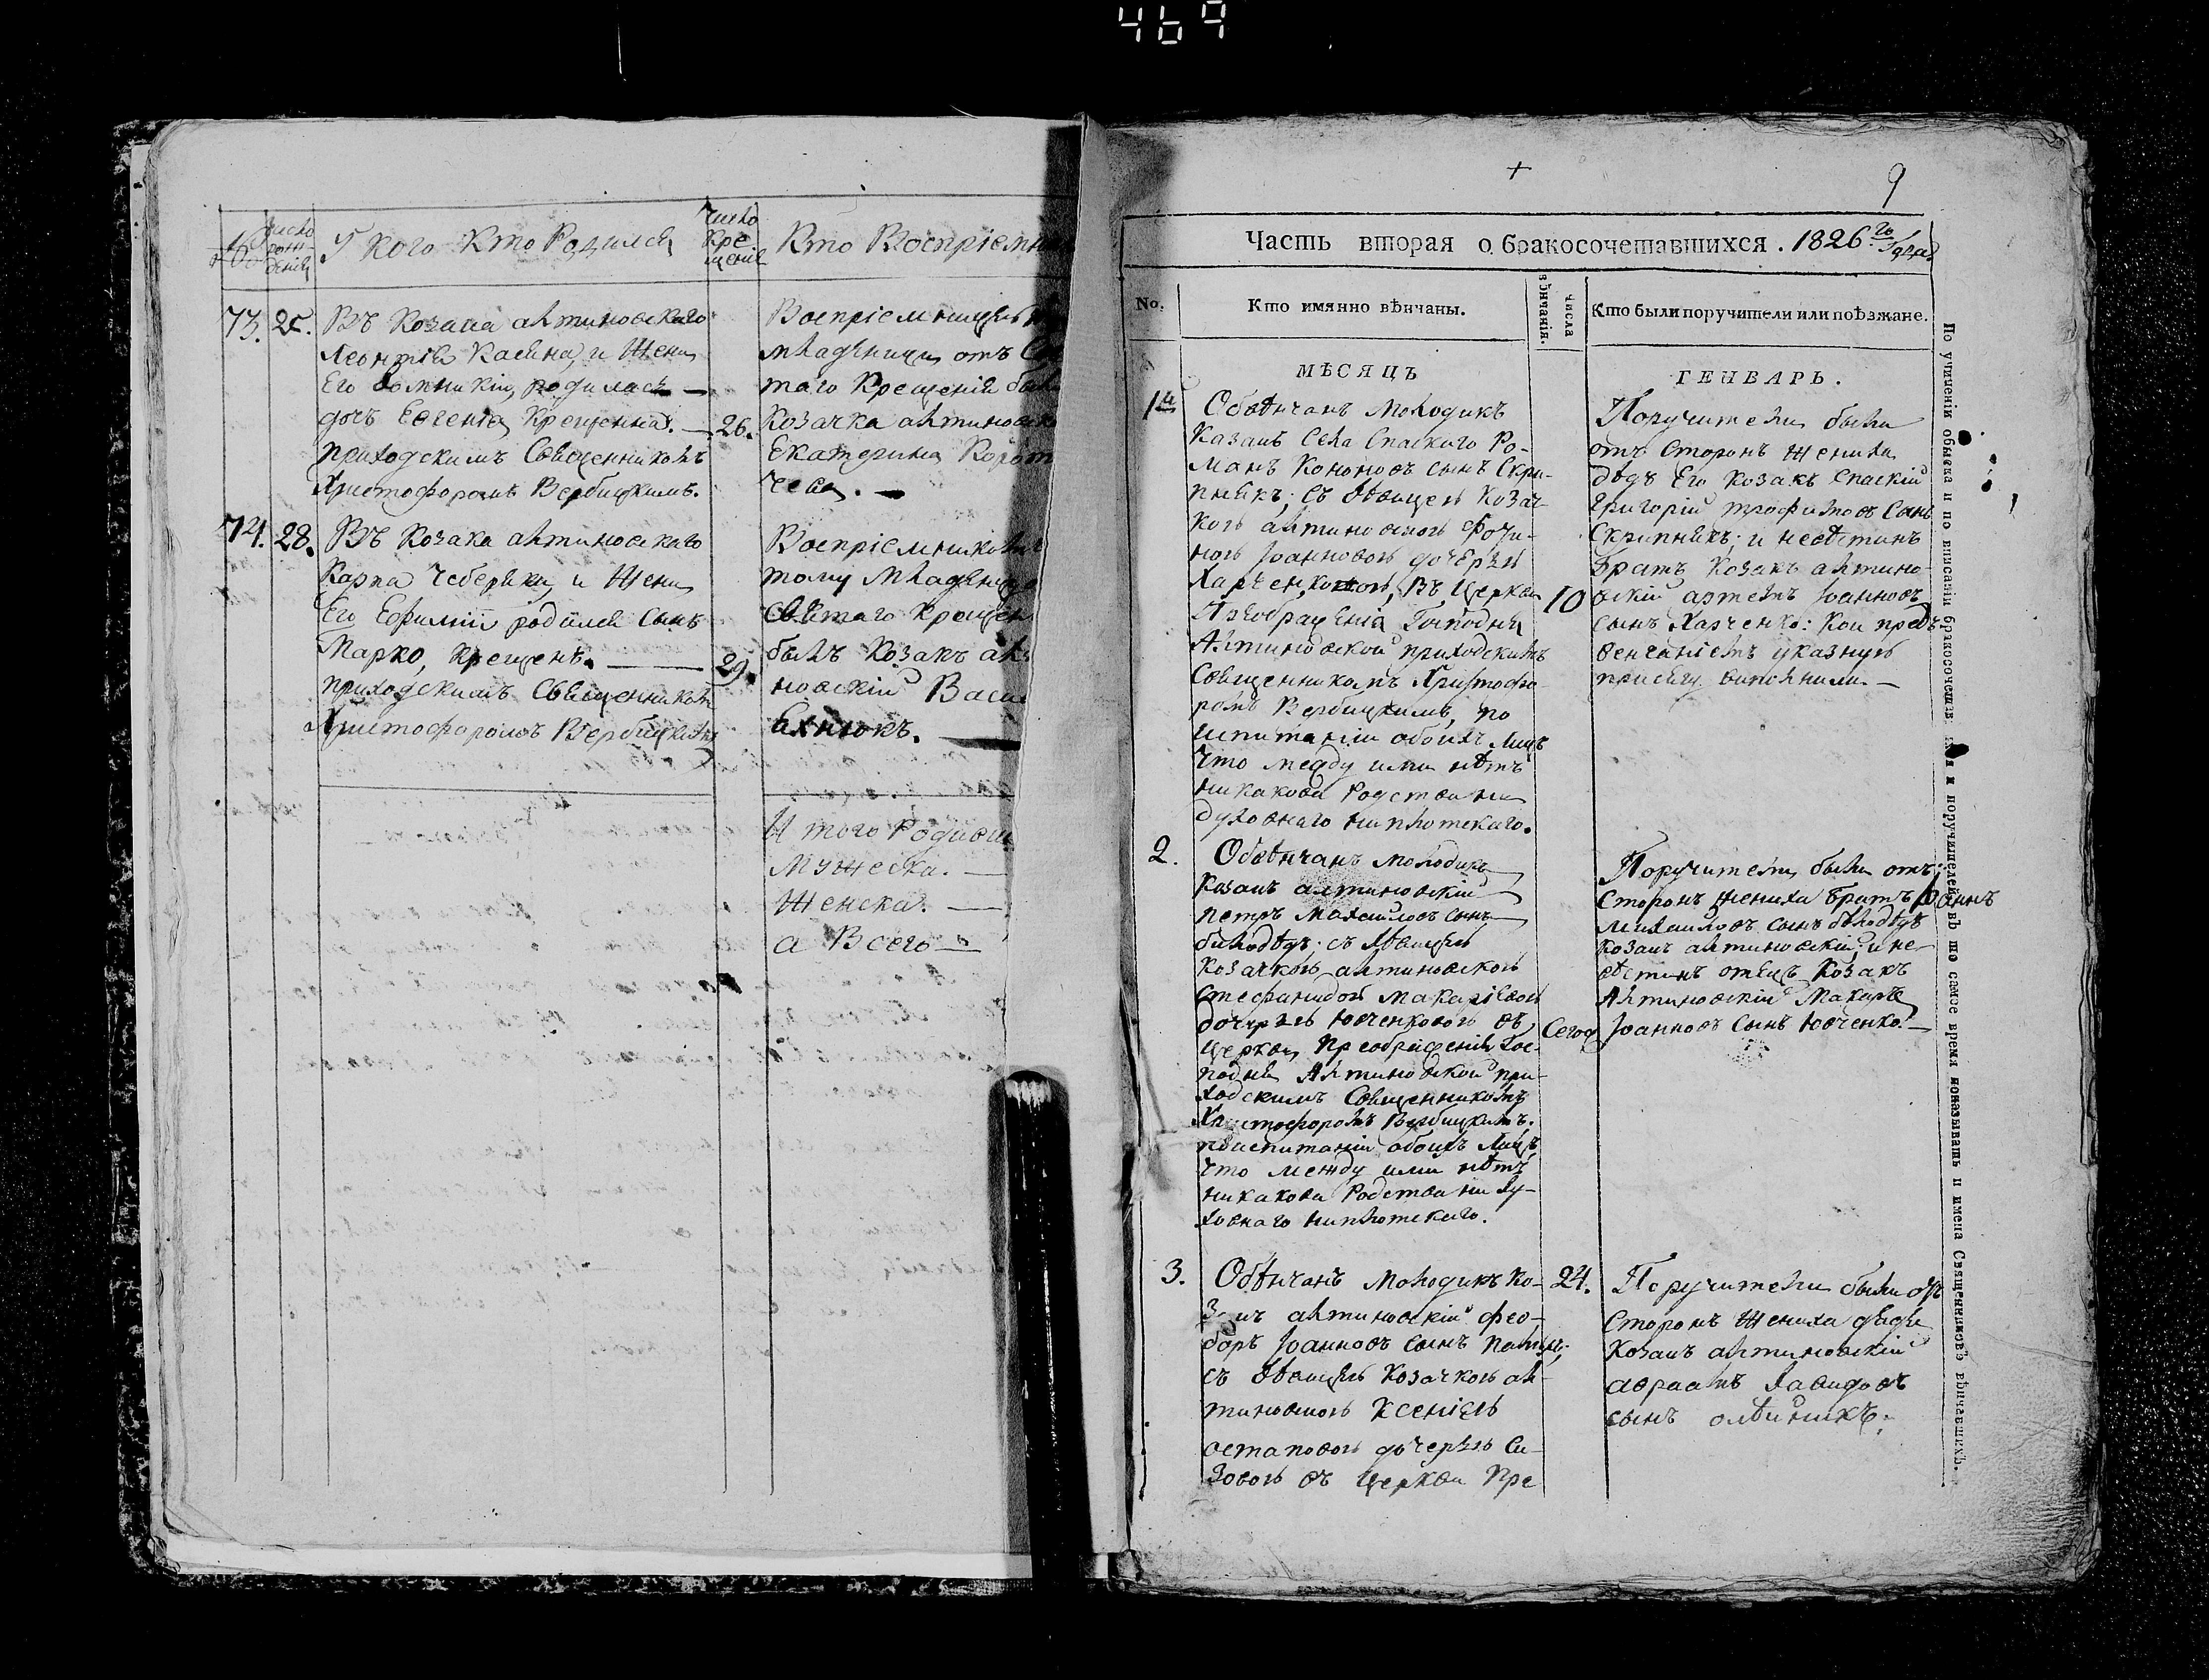 469
№
число рож-
денія
У кого кто Родился
число
кре-
щенія
Кто Воспріемни
73. 25. Въ Козака алтиновскаго
Леонтія Касяна, и Жени
Его Домникіи, родилась —
дочъ Евгенія, Крещенна. — 26.
приходскимъ Священникомъ
Христофоромъ Вербицкимъ.
Воспріемницею
младеницы отъ
таго Крещенія был
Козачка алтиновск
Екатерина Корот
чева. —
74. 28. Въ Козака алтиновскаго
Карпа Чеберяки, и Жени
Его Ефиміи родился Сынъ
Марко, Крещенъ. — 29.
приходскимъ Священникомъ
Христофоромъ Вербицкимъ
Воспріемникомъ
тому младенцу
Святаго Крещен
былъ Козакъ ал
новскій Васи
Бхнюкъ. —
И того Родивш
Мужеска. —
Женска. —
а Всего —
9
Часть вторая о бракосочетавшихся. 1826го Года
No.
Кто имянно вѣнчаны.
числа
вѣнчанія.
Кто были поручители или поѣзжане.
МѢСЯЦЪ
ГЕНВАРЬ.
1й
Обвѣнчанъ Молодикъ
Казакъ Села Спаскаго Ро-
манъ Кононовъ сынъ Скри-
пникъ; съ дѣвицею Козач-
кою алтиновскою Фоти-
ною Іоанновою дочерью
Харченковою, Въ Церкви
Преображенія Господня
Алтиновской приходскимъ
Священникомъ Христофо-
ромъ Вербицкимъ, по
испитаніи обоихъ Лицъ
Что между ими нѣтъ
никакова Родства ни
духовнаго ниплотскаго.
10
Поручители были
отъ Сторонъ Жениха
дядя Его Козакъ Спаскій
Григорій Трофимовъ Сынъ
Скрипникъ; и невѣстинъ
братъ Козакъ алтино-
вскій артемъ Іоанновъ
сынъ Харченко: Кои предъ
венчаніемъ указную
присягу виполнили. —
2.
Обвѣнчанъ Молодикъ
Козакъ алтиновскій
петръ Михайловъ сынъ
билодѣдъ; съ дѣвицею
Козачкою алтиновскою
Стефанидой Макаріевою
дочерью Ювченковою въ
Церкви Преображенія Гос-
подня Алтиновской при-
ходскимъ Священникомъ
Христофоромъ Вербицкимъ.
поиспитаніи обоихъ Лицъ
что между ими нѣтъ
никакова Родства ни ду-
ховнаго ниплотскаго.
Сегод
Поручители были отъ
Сторонъ жениха братъ Іоаннъ
Михайловъ сынъ бѣлодѣдъ
козакъ алтиновскій; и не-
вѣстинъ отецъ Козакъ
Алтиновскій Макарѣ
Іоанновъ Сынъ Ювченко. —
3.
Обвѣнчанъ Молодикъ Ко-
закъ алтиновскій Фео-
доръ Іоанновъ сынъ
съ дѣвицею Козачкою ал-
тиновскою Ксеніею
остаповою дочерью Си-
зовою въ Церкви Пре
24.
Поручители были отъ
Сторонъ Жениха дядя
Козакъ алтиновскій
авраамъ Давидовъ
сынъ олѣйникъ;
По учиненіи обыска и по вписаніи бракосочетав я и поручителей въ то самое время показывать и имена Священниковъ вѣнчавшихъ.